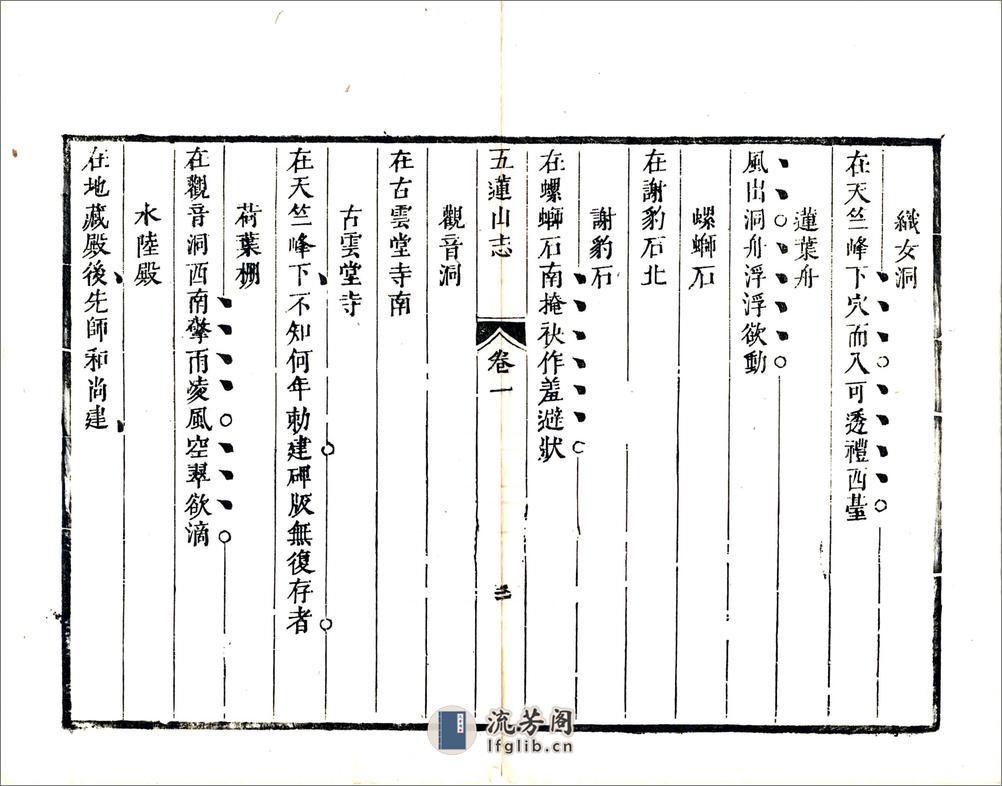 織女洞
在天竺峰下穴而入可透禮西臺
蓮葉舟
風出洞舟浮浮欲動
螺螄石
在謝豹石北
謝豹石
在螺螄石南掩袂作羞避狀
五蓮山志
卷一
三
觀音洞
在古雲堂寺南
古雲堂寺
在天竺峰下不知何年勅建碑版無復存者
荷葉棚
在觀音洞西南擎雨凌風空翠欲滴
水陸殿
在地藏殿後先師和尚建
流芳阁
lfglib.cn